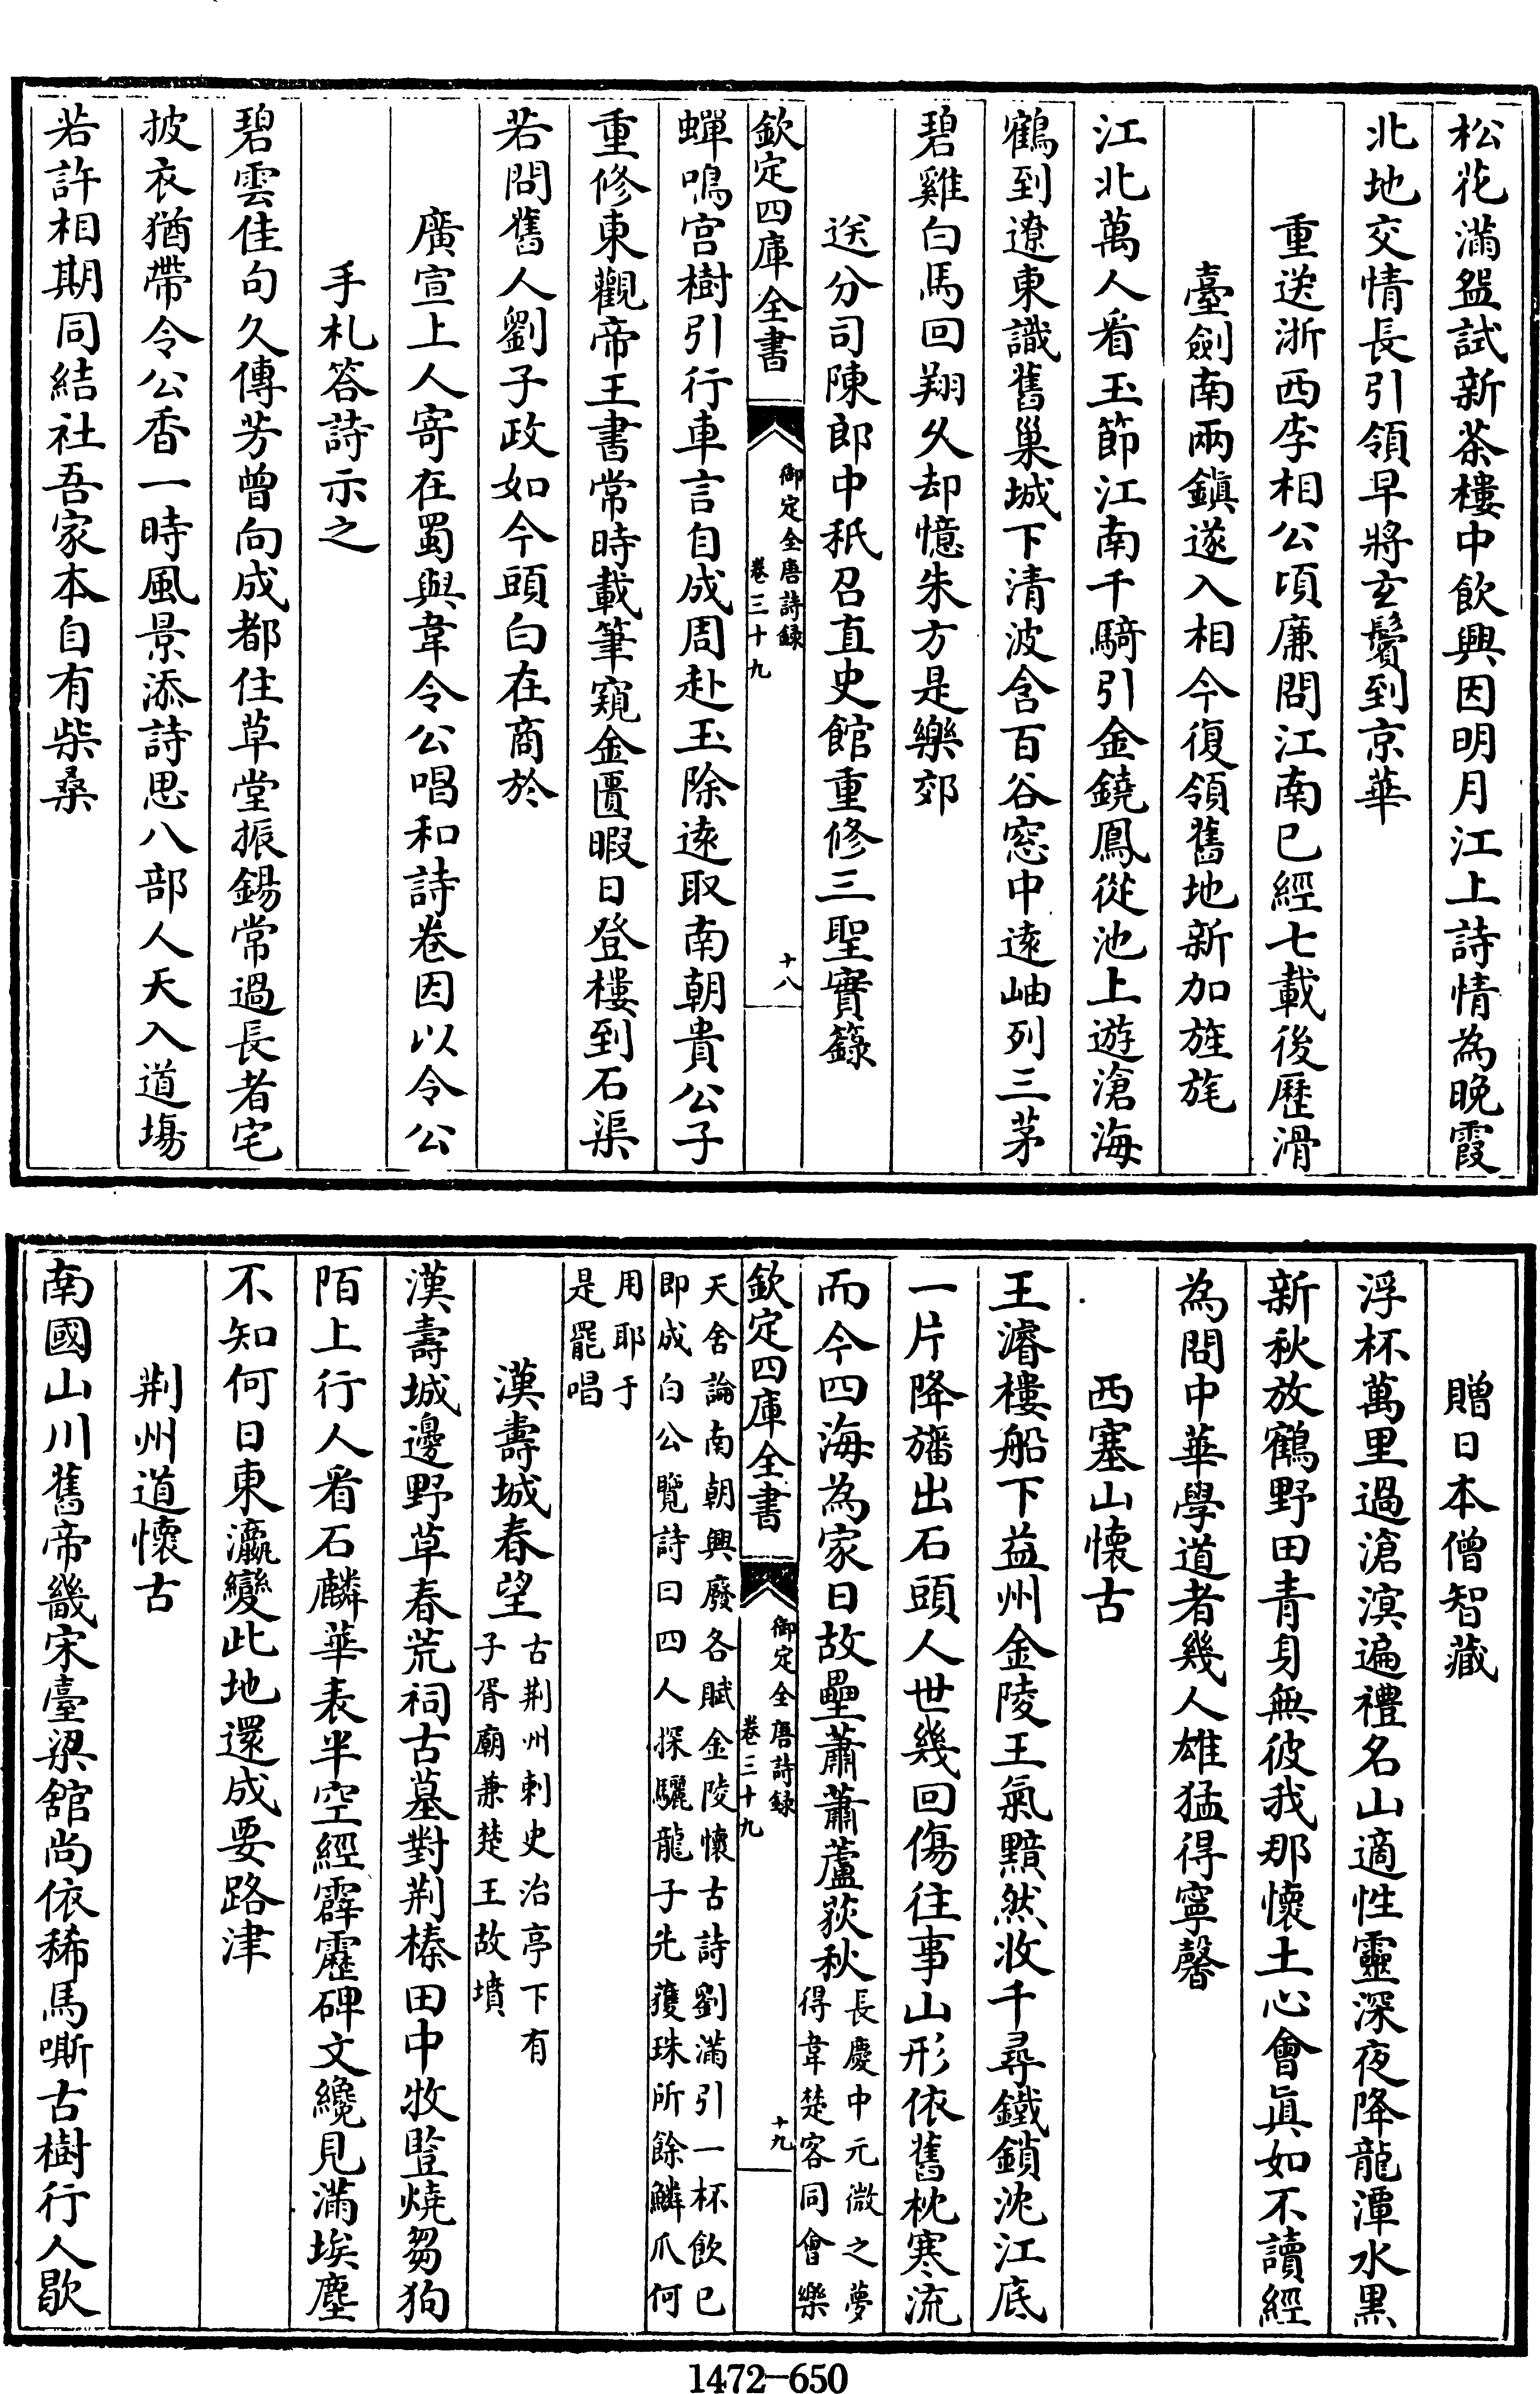 松花滿盌試新茶樓中飲興因明月江上詩情為晚霞
北地交情長引領早將玄鬢到京華
重送浙西李相公頃廉問江南已經七載後歷滑
臺劍南兩鎮遂入相今復領舊地新加旌旄
江北萬人看玉節江南千騎引金鐃鳳從池上遊滄海
鶴到遼東識舊巢城下清波含百谷窓中逺岫列三茅
碧雞白馬回翔久却憶朱方是樂郊
送分司陳郎中秖召直史館重修三聖實錄
欽定四庫全書
御定全唐詩錄
卷三十九
十八
蟬鳴宫樹引行車言自成周赴玉除逺取南朝貴公子
重修東觀帝王書常時載筆窺金匱暇日登樓到石渠
若問舊人劉子政如今頭白在商於
廣宣上人寄在蜀與韋令公唱和詩卷因以令公
手札答詩示之
碧雲佳句久傳芳曾向成都住草堂振錫常過長者宅
披衣猶帶令公香一時風景添詩思八部人天入道塲
若許相期同結社吾家本自有柴桑
贈日本僧智藏
浮杯萬里過滄溟遍禮名山適性靈深夜降龍潭水黒
新秋放鶴野田青身無彼我那懷土心會眞如不讀經
為問中華學道者幾人雄猛得寧馨
西塞山懷古
王濬樓船下益州金陵王氣黯然收千尋鐵鎖沈江底
一片降旛出石頭人世幾回傷往事山形依舊枕寒流
而今四海為家日故壘蕭蕭蘆荻秋
長慶中元微之夢
得韋楚客同會樂
欽定四庫全書
御定全唐詩錄
卷三十九
十九
天舍論南朝興廢各賦金陵懷古詩劉滿引一杯飲已
即成白公覽詩曰四人探驪龍子先獲珠所餘鱗爪何
用耶于
是罷唱
漢壽城春望
古荆州刺史治亭下有
子胥廟兼楚王故墳
漢壽城邊野草春荒祠古墓對荆榛田中牧豎燒芻狗
陌上行人看石麟華表半空經霹靂碑文纔見滿埃塵
不知何日東瀛變此地還成要路津
荆州道懷古
南國山川舊帝畿宋臺梁館尚依稀馬嘶古樹行人歇
1472-650